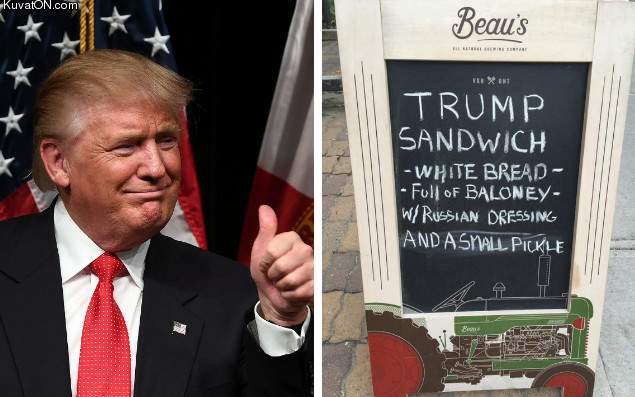 KuvatON.com
Beau's
ALL NATURAL BREWING COMPANY
TRUMP
SANDWICH
-WHITE BREAD-
-FULL OF BALONEY-
W/RUSSIAN DRESSING
AND A SMALL PICKLE
Beau's